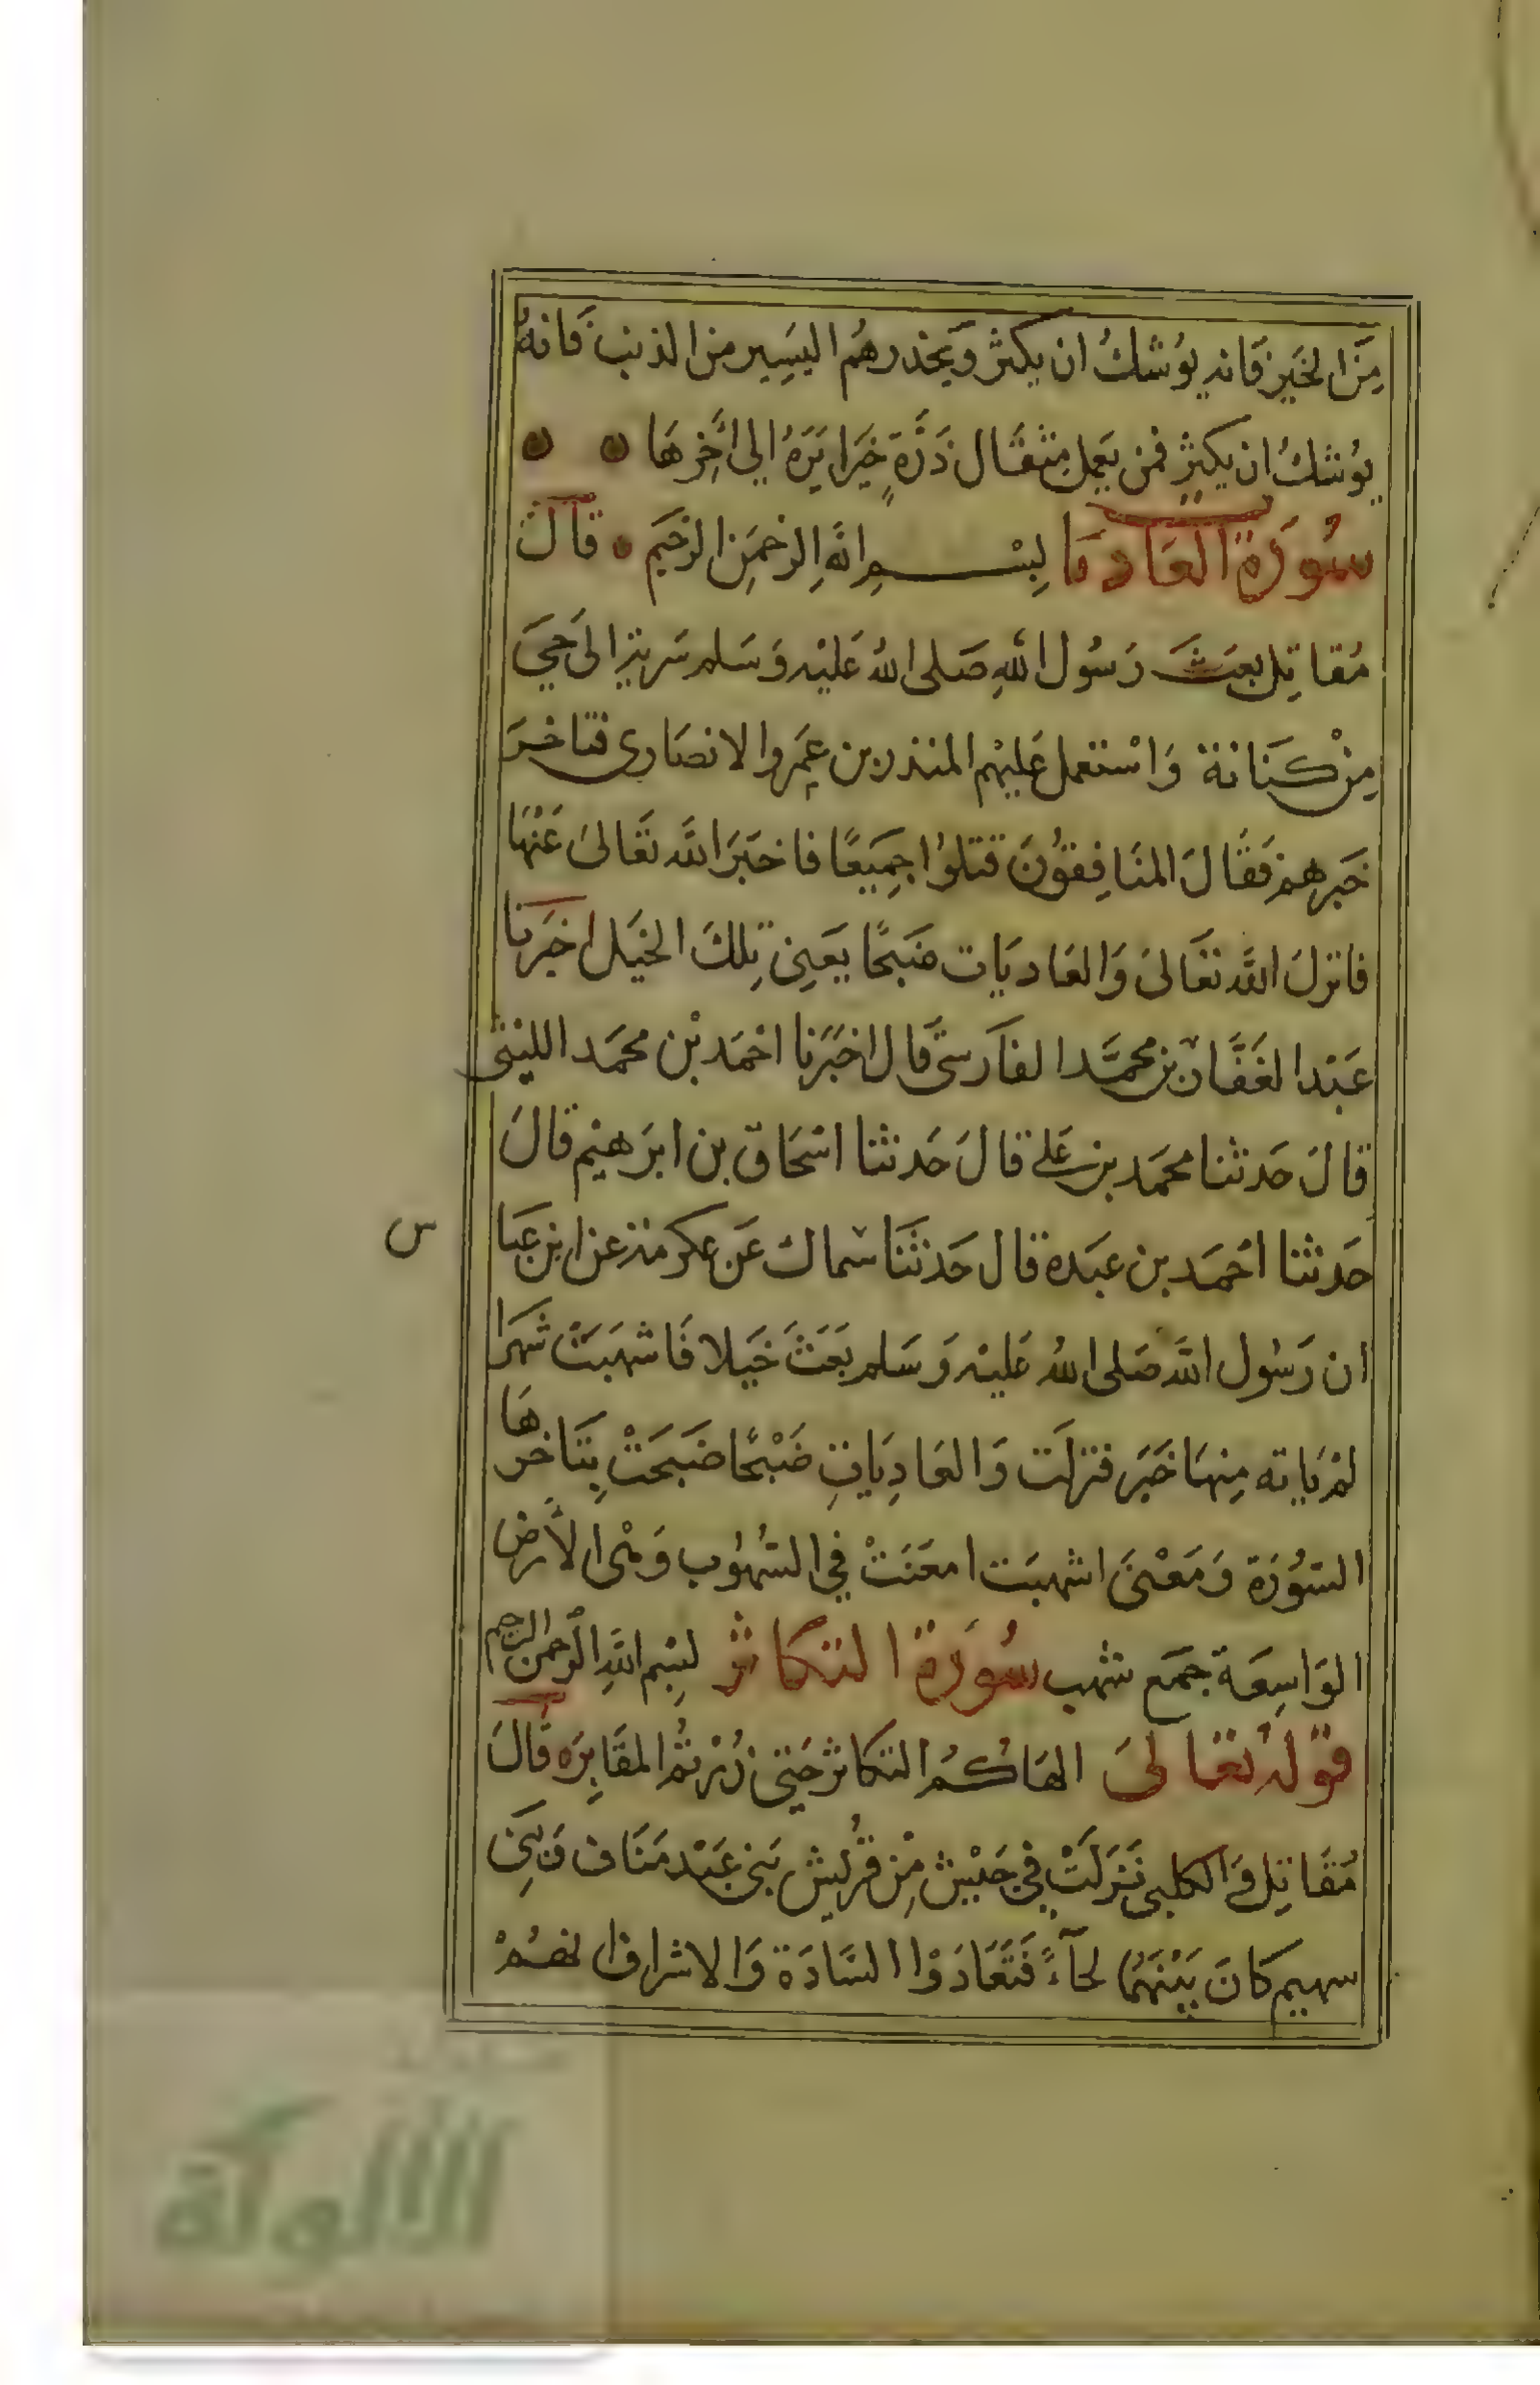 مِنَ الخَيْرِ فَانه يوُشكُ ان يكثر وَيحذرهُم اليَسِير من الذنب فَانهُ
يوُشكُ ان يكثر فمن يَعمل مِثقَال ذَرَّةٍ خَيَرا يَرَهُ الي اخِرهَا
سُورَة العَاديَات لِبسْم اللهِ الرحمَنِ الرحَيم قالَ
مُقاتِل بعَث رَسُول اللهِ صَلى اللهُ عَليْه وَسَلم سَرية الىَ حيَ
مِنْ كنَانة وَاسْتعمل عَليْهم المنذر بن عمِرو الانصَارى فتاخرَ
خَبرهم فَقالَ المنَافِقوُنَ قتلوُا جمِيَعًا فاخبَرَ اللَّه تعَالىَ عَنْهَا
فانزلَ اللَّه تعَالىَ وَالعَاديَات ضَبَحًا يَعنِى تِلكَ الخيَل اخبَرنا
عَبْد الغَفَّار بن محمَّد الفاَرسىّ قال اخبَرَنا احْمَد بْن محمَد الليثى
قالَ حَدثنا محمَد بن عَلى قالَ حَدثنا اسْحَاق بن ابرَهيْم قالَ
حَدثنا احَمَد بن عبَده قال حَدثنَا سماك عَن عكرمة عن ابن عَبا
س
ان رَسُول اللَّه صَلى اللهُ عَليْه وَسَلم بَعَثَ خَيَلا فَاشهَبَتْ شهَرا
لمْ يَاته مِنهَا خَبَر فنزلَت وَالعَادِيَاتِ ضَبْحًا ضَبَحَتْ بِتَاخرهَا
السّوُرَة وَمَعْنىَ اشهبَت امعَنَتْ فِي السُّهوُب وَهْى الأرض
الوَاسِعَة جمَع شهب سُورَة التكَاثر لبِسْم اللهِ الرحمن الرحيم
قوله تعَالىَ الهَاكمُ التكاثر حَتىّ زُرْتمُ المقَابِرَ قَالَ
مُقَاتِل وَالكلبى نَزَلَتْ في حَيَّيْن مِنْ قرُيش بَنى عَبْد مَنَاف وَبَنِى
سهيم كانَ بَيْنَهُمَا لحَآءً فَتَعَادَوْا السَّادَة وَالاشراف ايهُمْ